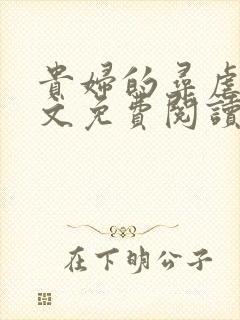 貴婦的尋虐
文免費閱讀
在下明公子